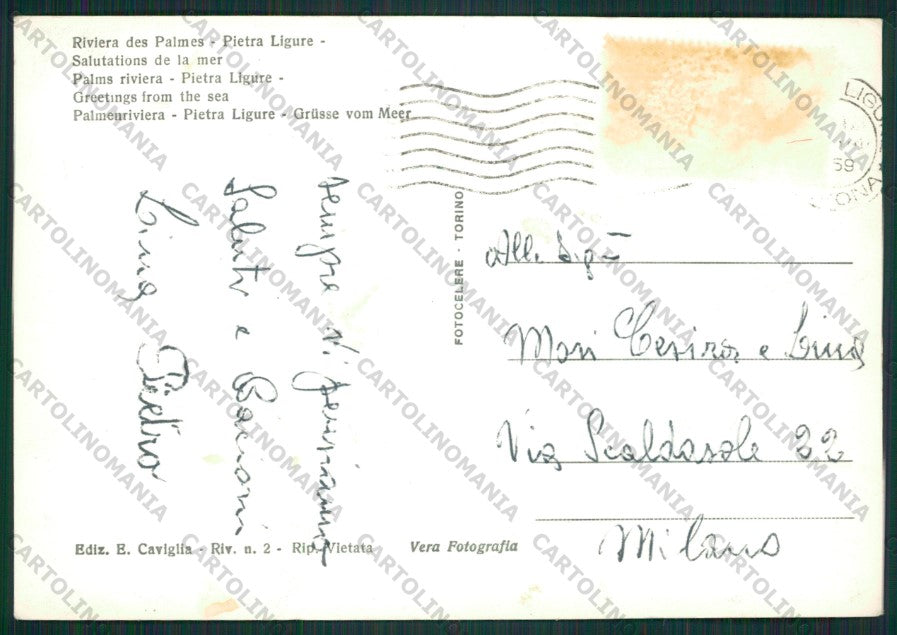 Riviera des Palmes - Pietra Ligure -
Salutations de la mer
Palms riviera - Pietra Ligure -
Greetings from the sea
Palmenriviera - Pietra Ligure - Grüsse vom Meer
sempre Vi pensiamo
Saluti e Bacioni
Lina Pietro
Ediz. E. Caviglia - Riv. n. 2 - Rip. Vietata
Vera Fotografia
FOTOCELERE - TORINO
59
Alla
Mori Cesira e Lina
Via Scaldasole 22
Milano
CARTOLINOMANIA